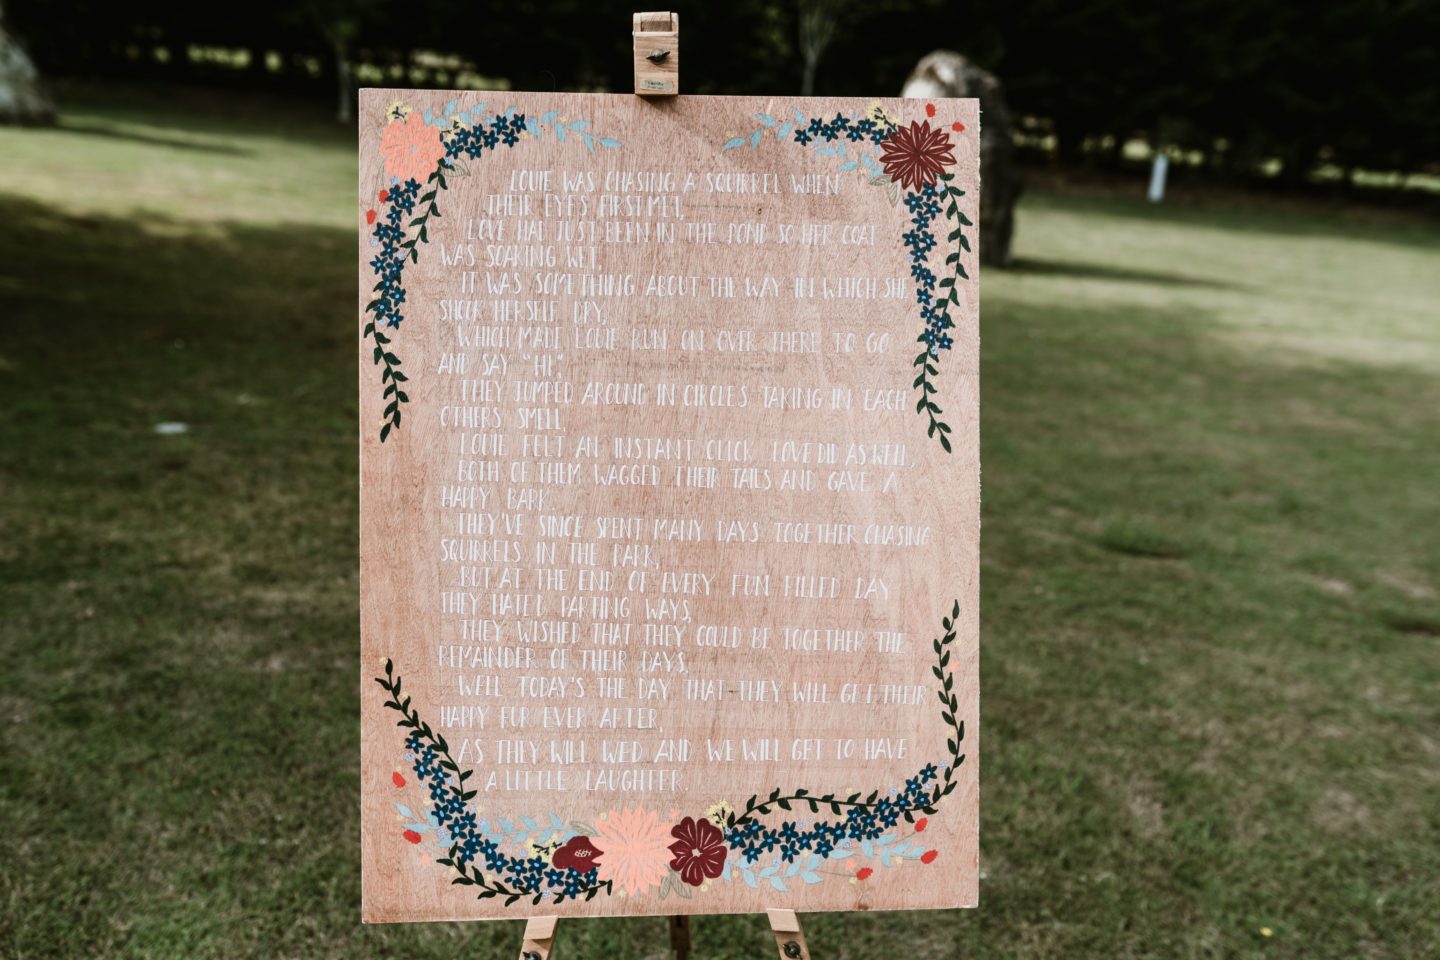 LOUIE WAS CHASING A SQUIRREL WHEN
THEIR EYES FIRST MET,
LOVE HAD JUST BEEN IN THE POND SO HER COAT
WAS SOAKING WET,
IT WAS SOMETHING ABOUT THE WAY IN WHICH SHE
SHOOK HERSELF DRY,
WHICH MADE LOUIE RUN ON OVER THERE TO GO
AND SAY "HI",
THEY JUMPED AROUND IN CIRCLES TAKING IN EACH
OTHERS SMELL,
LOUIE FELT AN INSTANT CLICK LOVE DID AS WELL,
BOTH OF THEM WAGGED THEIR TAILS AND GAVE A
HAPPY BARK.
THEY'VE SINCE SPENT MANY DAYS TOGETHER CHASING
SQUIRRELS IN THE PARK,
BUT AT THE END OF EVERY FUN FILLED DAY
THEY HATED PARTING WAYS,
THEY WISHED THAT THEY COULD BE TOGETHER THE
REMAINDER OF THEIR DAYS,
WELL TODAY'S THE DAY THAT THEY WILL GET THEIR
HAPPY FUR EVER AFTER,
AS THEY WILL WED AND WE WILL GET TO HAVE
A LITTLE LAUGHTER.